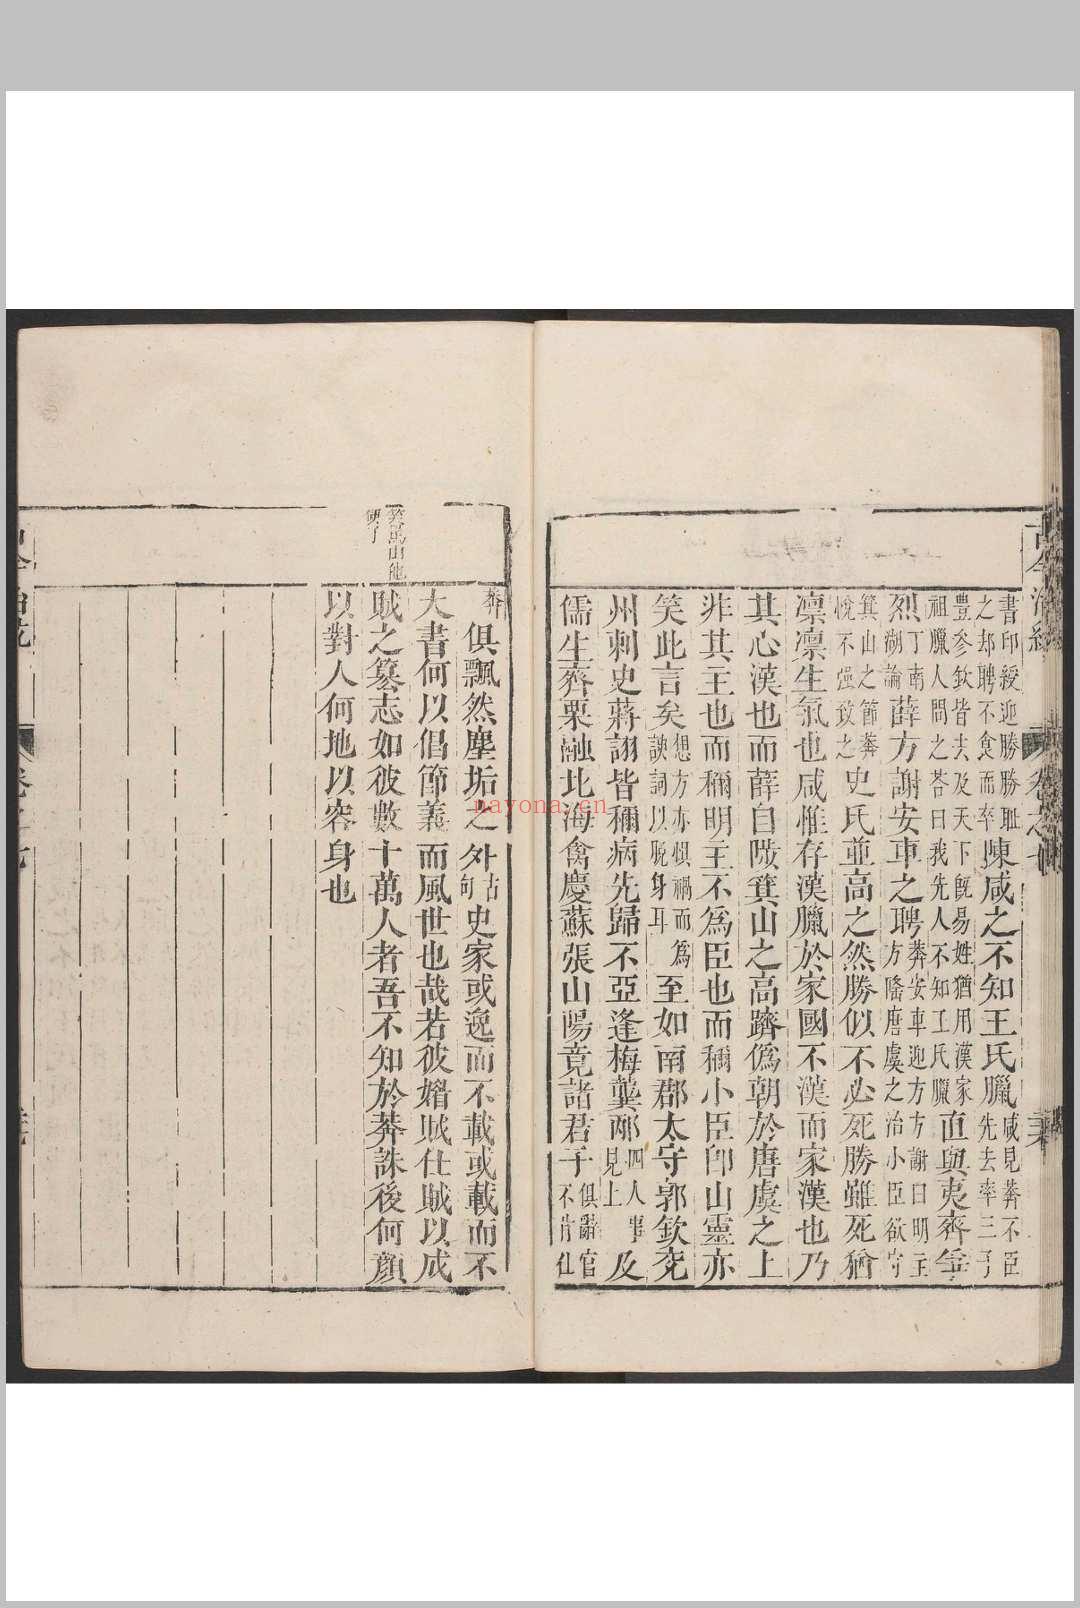 書印綬迎勝勝恥之却聘不食而卒陳咸之不知王氏臘咸見莽不臣先去率三子
豐參欽皆去及天下旣易姓猶用漢家祖臘人問之荅曰我先人不知王氏臘直與夷齊爭
烈丁南湖論薛方謝安車之聘莽安車迎方方謝曰明主方隆唐虞之治小臣欲守
箕山之節莽悅不强致之史氏並高之然勝似不必死勝雖死猶
凛凛生氣也咸惟存漢臘於家國不漢而家漢也乃
其心漢也而薛自陂箕山之高躋僞朝於唐虞之上
非其主也而稱明主不爲臣也而稱小臣卽山靈亦
笑此言矣想方亦惧禍而爲諛詞以脫身耳至如南郡太守郭欽兖
州刺史蔣詡皆稱病先歸不亞逢梅龔邴四人事見上及
儒生齊栗融北海禽慶蘇張山陽竟諸君子俱辭官不肯仕
莽俱飄然塵垢之外古句史家或逸而不載或載而不
大書何以倡節義而風世也哉若彼媚賊仕賊以成
賊之簒志如彼數十萬人者吾不知於莽誅後何顏
以對人何地以容身也
卷之七
nayona.cn